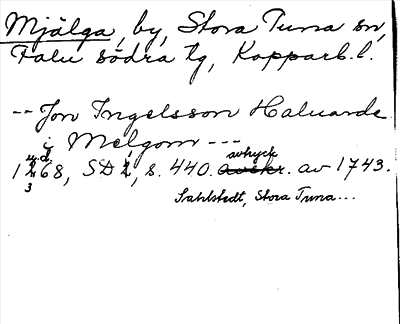 Mjälga, by, Stora Tuna sn,
Falu södra tg, Kopparb. l.
-- Jon Ingelsson Haluarde
i Melgom ---
u.d. avtryck
1268, SD 1, s. 440. avskr. av 1743.
3
Sahlstedt, Stora Tuna...